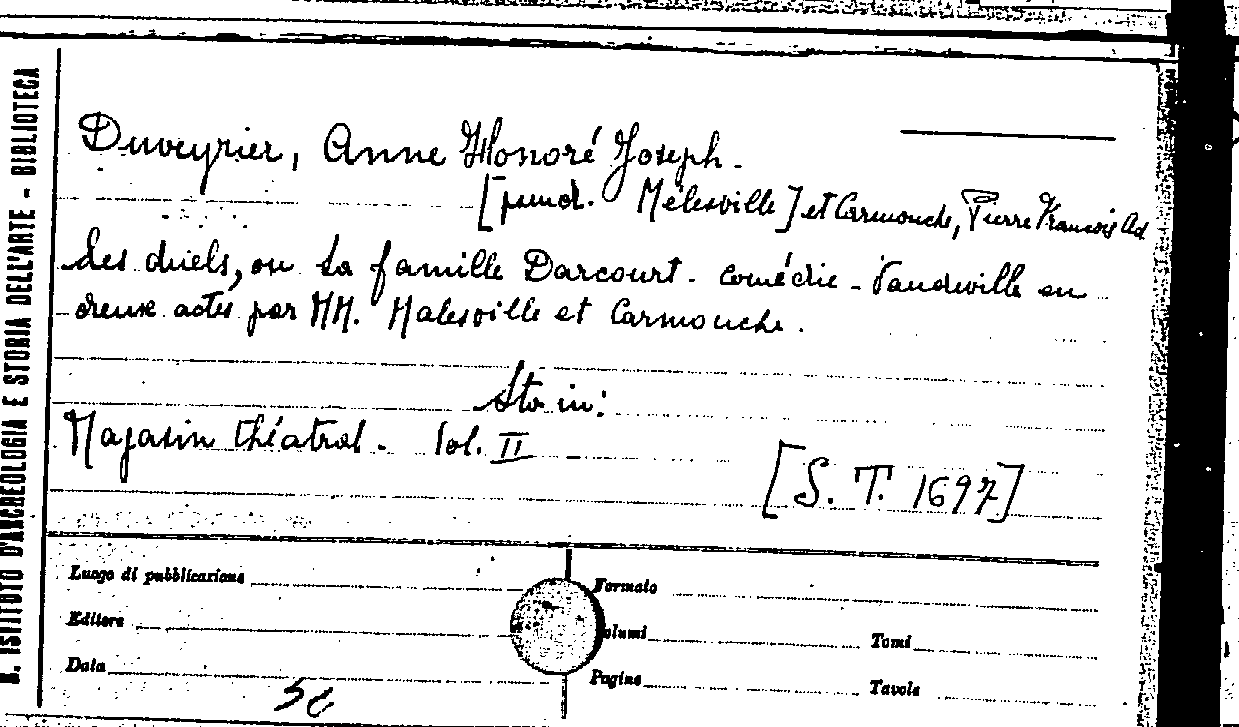 R. ISTITUTO D'ARCHEOLOGIA E STORIA DELL'ARTE - BIBLIOTECA
Duveyrier, Anne Honoré Joseph.
[pseud. Mélesville] et Carmouche, Pierre François Ad
Les duels, ou La famille Darcourt. comédie - Vaudeville en
deux actes par MM. Malesville et Carmouche.
Sta in:
Magasin théatral. Vol. II
[S. T. 1697]
Luogo di pubblicazione
Formato
Editore
Volumi
Tomi
Data
Pagine
Tavole